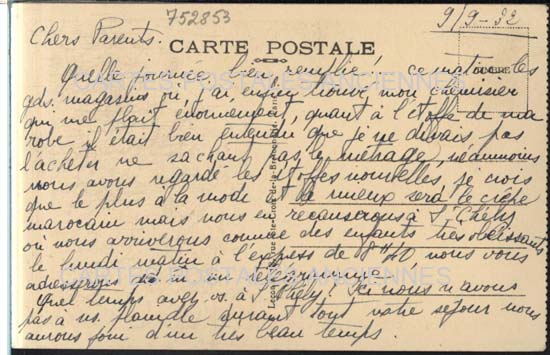 752853
9/9-32
Chers Parents.
CARTE POSTALE
Quelle journée bien remplie! ce matin les
gds. magasins où j'ai enfin trouvé mon chemisier
qui me plaît énormément, quant à l'étoffe de ma
robe il était bien entendu que je ne devais pas
l'acheter ne sachant pas le métrage, néanmoins
nous avons regardé les étoffes nouvelles je crois
que le plus à la mode et le mieux sera le crêpe
marocain mais nous en recauserons à St Chély
où nous arriverons comme des enfants très obéissants
le lundi matin à l'express de 8h40 nous vous
adresserons
Quel temps avez vs. à St Chély? Ici nous n'avons
pas à ns. plaindre durant tout notre séjour nous
aurons joui d'un très beau temps.
CARTES POSTALES ANCIENNES
CARTES POSTALES ANCIENNES